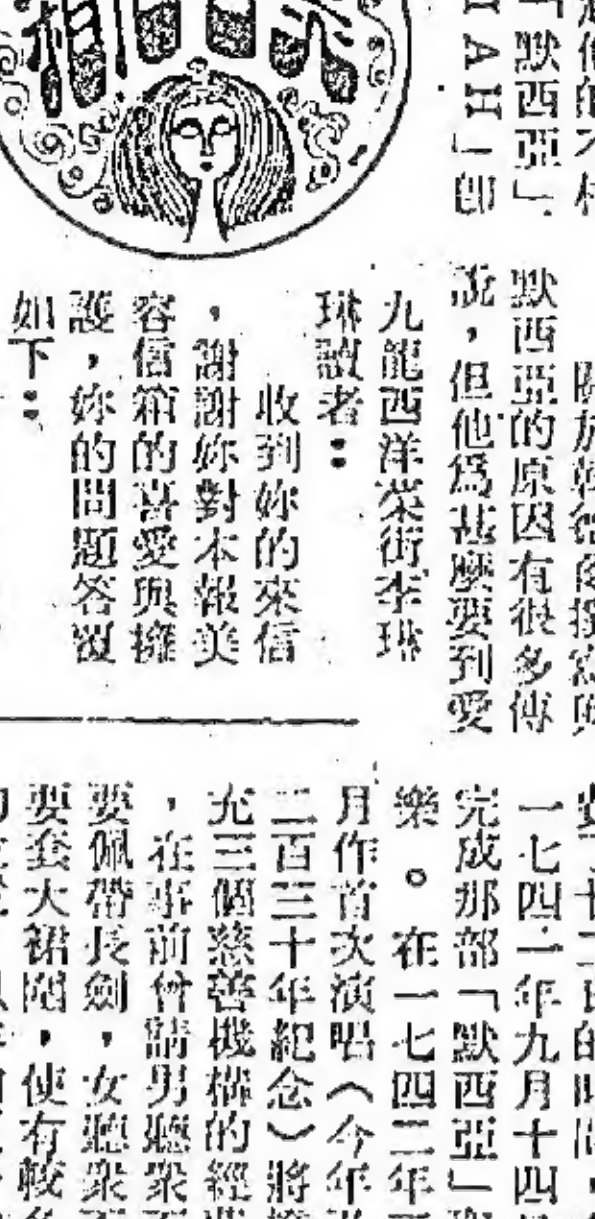 默西亞」
IAH」即
默西亞的原因有很多傳
說，但他爲甚麼要到愛
九龍西洋菜街李琳
琳讀者：
收到妳的來信
，謝謝妳對本報美
容信箱的喜愛與擁
護，妳的問題答覆
如下：
一七四一年九月十四
完成那部「默西亞」
樂。在一七四二年
月作首次演唱（今年
二百三十年紀念）將
充三個慈善機構的經
，在事前曾請男聽衆
要佩帶長劍，女聽衆
要套大裙闊，使有較